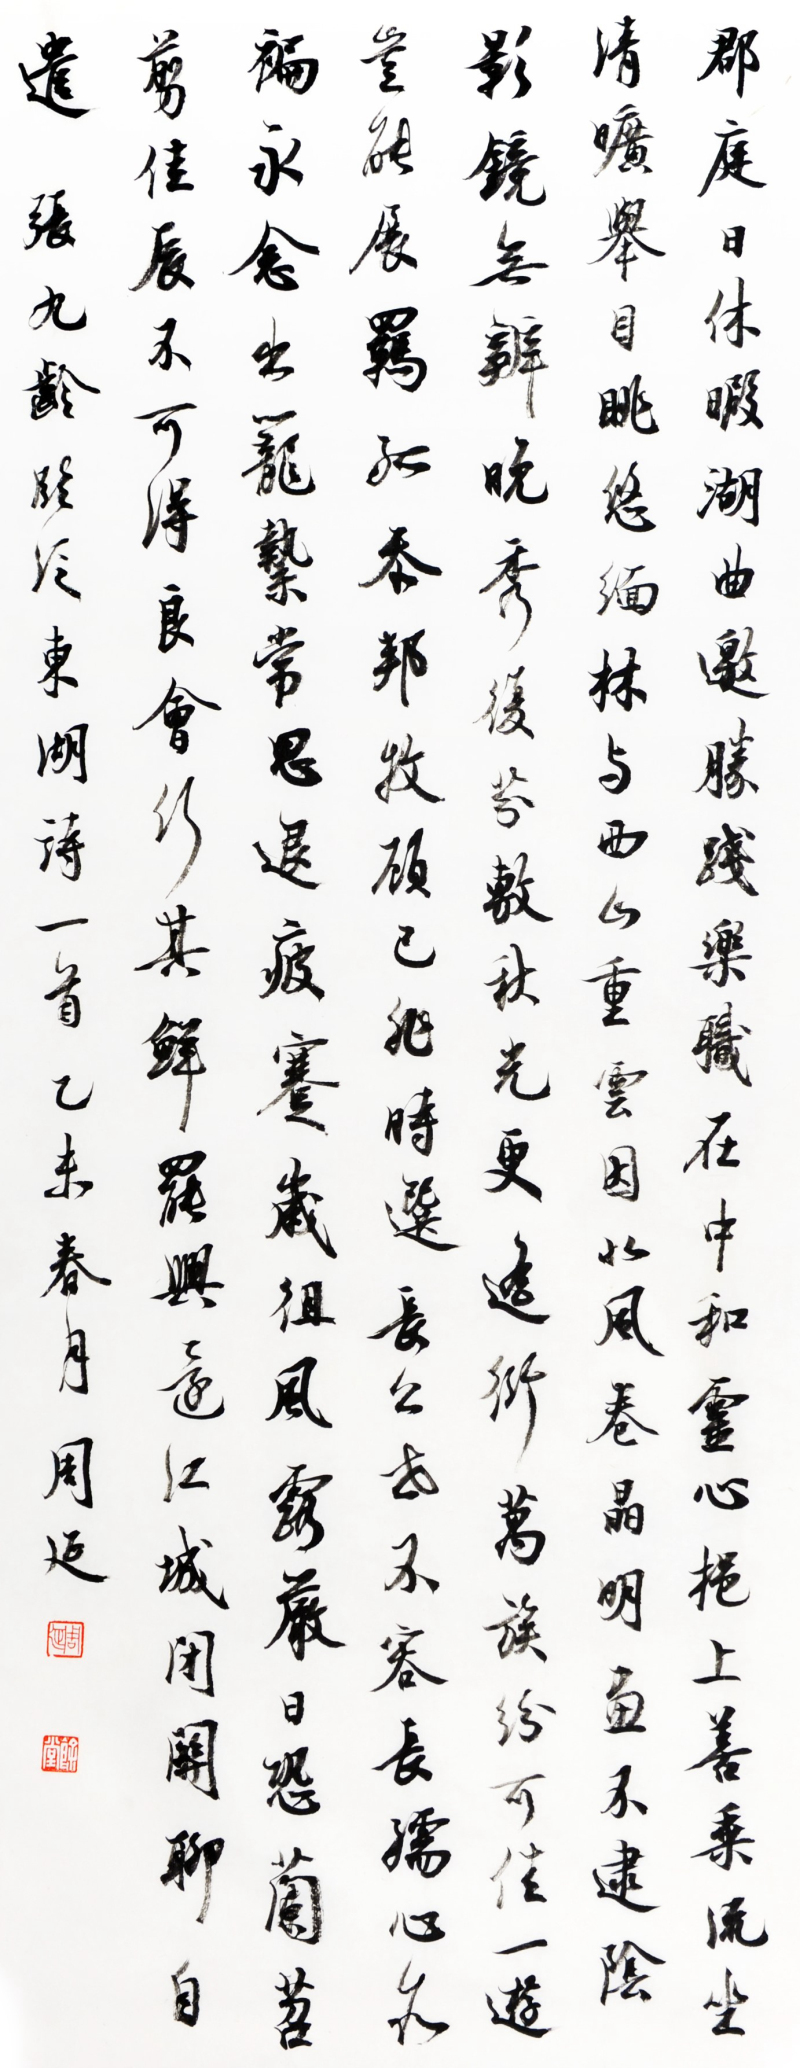 郡庭日休暇湖曲邀勝踐樂職在中和靈心挹上善乘流坐
清曠舉目眺悠緬林与西山重雲因北風卷晶明畫不逮陰
影鏡無辨晚秀復芬敷秋光更遙衍萬族紛可佳一遊
豈能展羈孤忝邦牧顧己非時選長公世不容長孺心亦
褊永念出籠縶常思退疲蹇歲徂風露嚴日恐蘭苕
剪佳辰不可得良會行其鮮罷興還江城閉關聊自
遣 張九齡臨泛東湖詩一首 乙未春月 周延
周延
堂